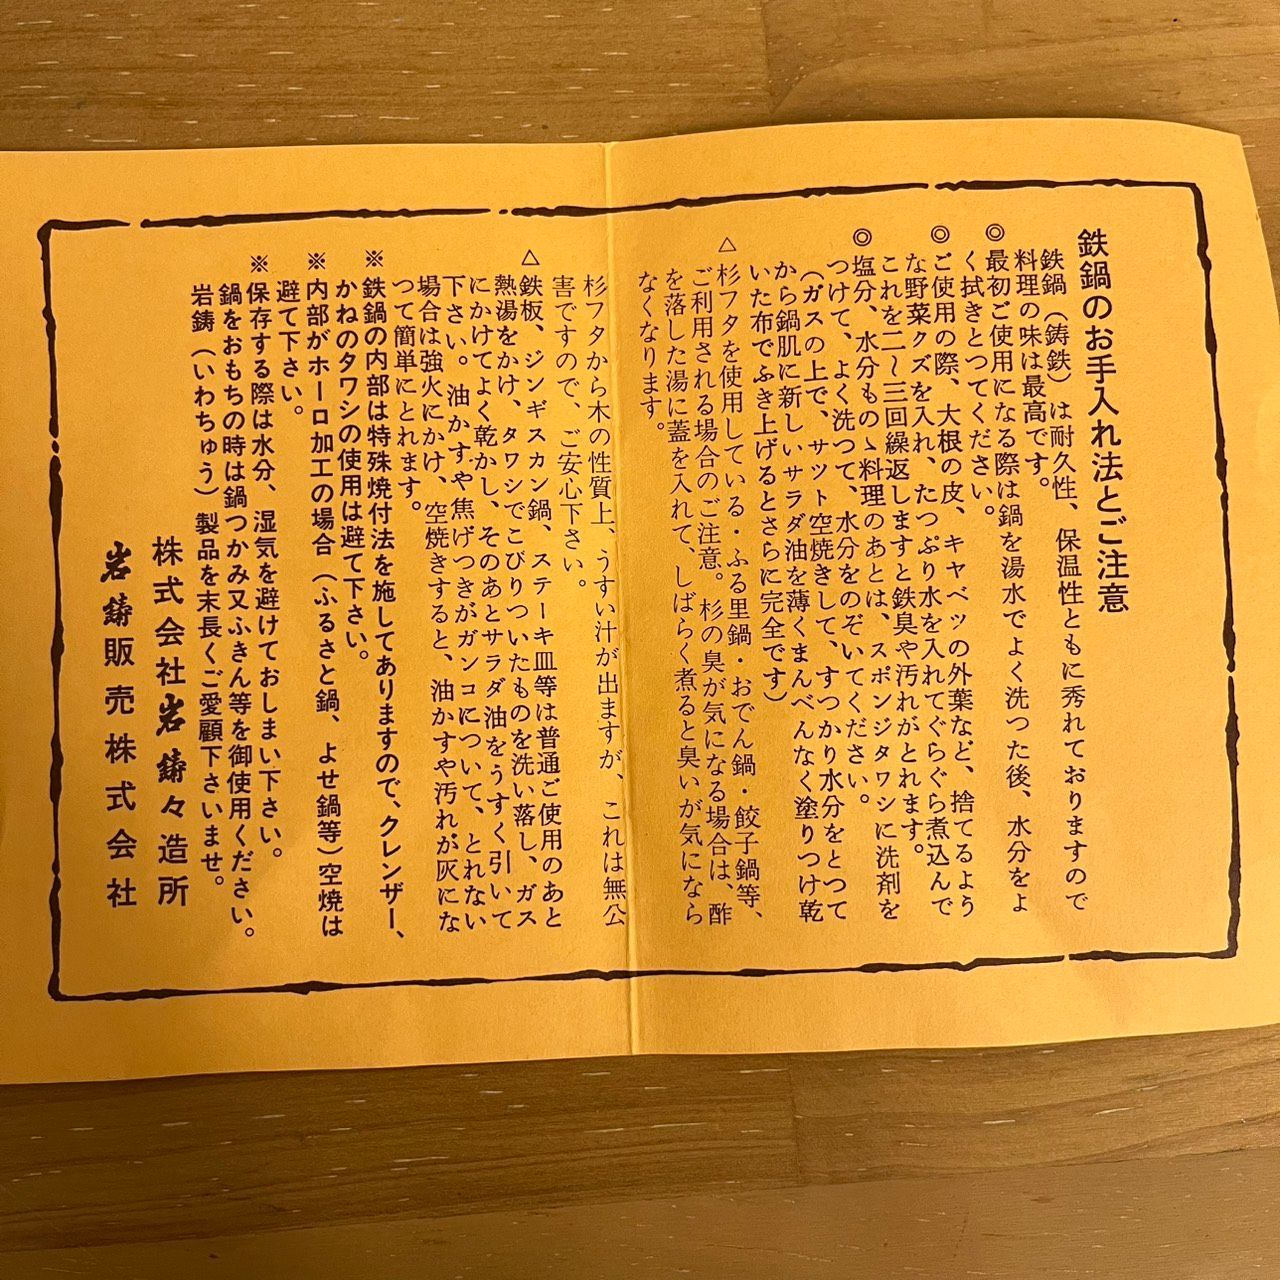 鉄鍋のお手入れ法とご注意
鉄鍋（鋳鉄）は耐久性、保温性ともに秀れておりますので
料理の味は最高です。
◎最初ご使用になる際は鍋を湯水でよく洗つた後、水分をよ
く拭きとつてください。
◎ご使用の際、大根の皮、キヤベツの外葉など、捨てるよう
な野菜クズを入れ、たつぷり水を入れてぐらぐら煮込んで
これを二～三回繰返しますと鉄臭や汚れがとれます。
◎塩分、水分ものゝ料理のあとは、スポンジタワシに洗剤を
つけて、よく洗つて、水分をのぞいてください。
（ガスの上で、サツト空焼きして、すつかり水分をとつて
から鍋肌に新しいサラダ油を薄くまんべんなく塗りつけ乾
いた布でふき上げるとさらに完全です）
△杉フタを使用している・ふる里鍋・おでん鍋・餃子鍋等、
ご利用される場合のご注意。杉の臭が気になる場合は、酢
を落した湯に蓋を入れて、しばらく煮ると臭いが気になら
なくなります。
杉フタから木の性質上、うすい汁が出ますが、これは無公
害ですので、ご安心下さい。
△鉄板、ジンギスカン鍋、ステーキ皿等は普通ご使用のあと
熱湯をかけ、タワシでこびりついたものを洗い落し、ガス
にかけてよく乾かし、そのあとサラダ油をうすく引いて
下さい。油かすや焦げつきがガンコについて、とれない
場合は強火にかけ、空焼きすると、油かすや汚れが灰にな
つて簡単にとれます。
※鉄鍋の内部は特殊焼付法を施してありますので、クレンザー、
かねのタワシの使用は避て下さい。
※内部がホーロ加工の場合（ふるさと鍋、よせ鍋等）空焼は
避て下さい。
※保存する際は水分、湿気を避けておしまい下さい。
鍋をおもちの時は鍋つかみ又ふきん等を御使用ください。
岩鋳（いわちゅう）製品を末長くご愛顧下さいませ。
株式会社岩鋳々造所
岩鋳販売株式会社